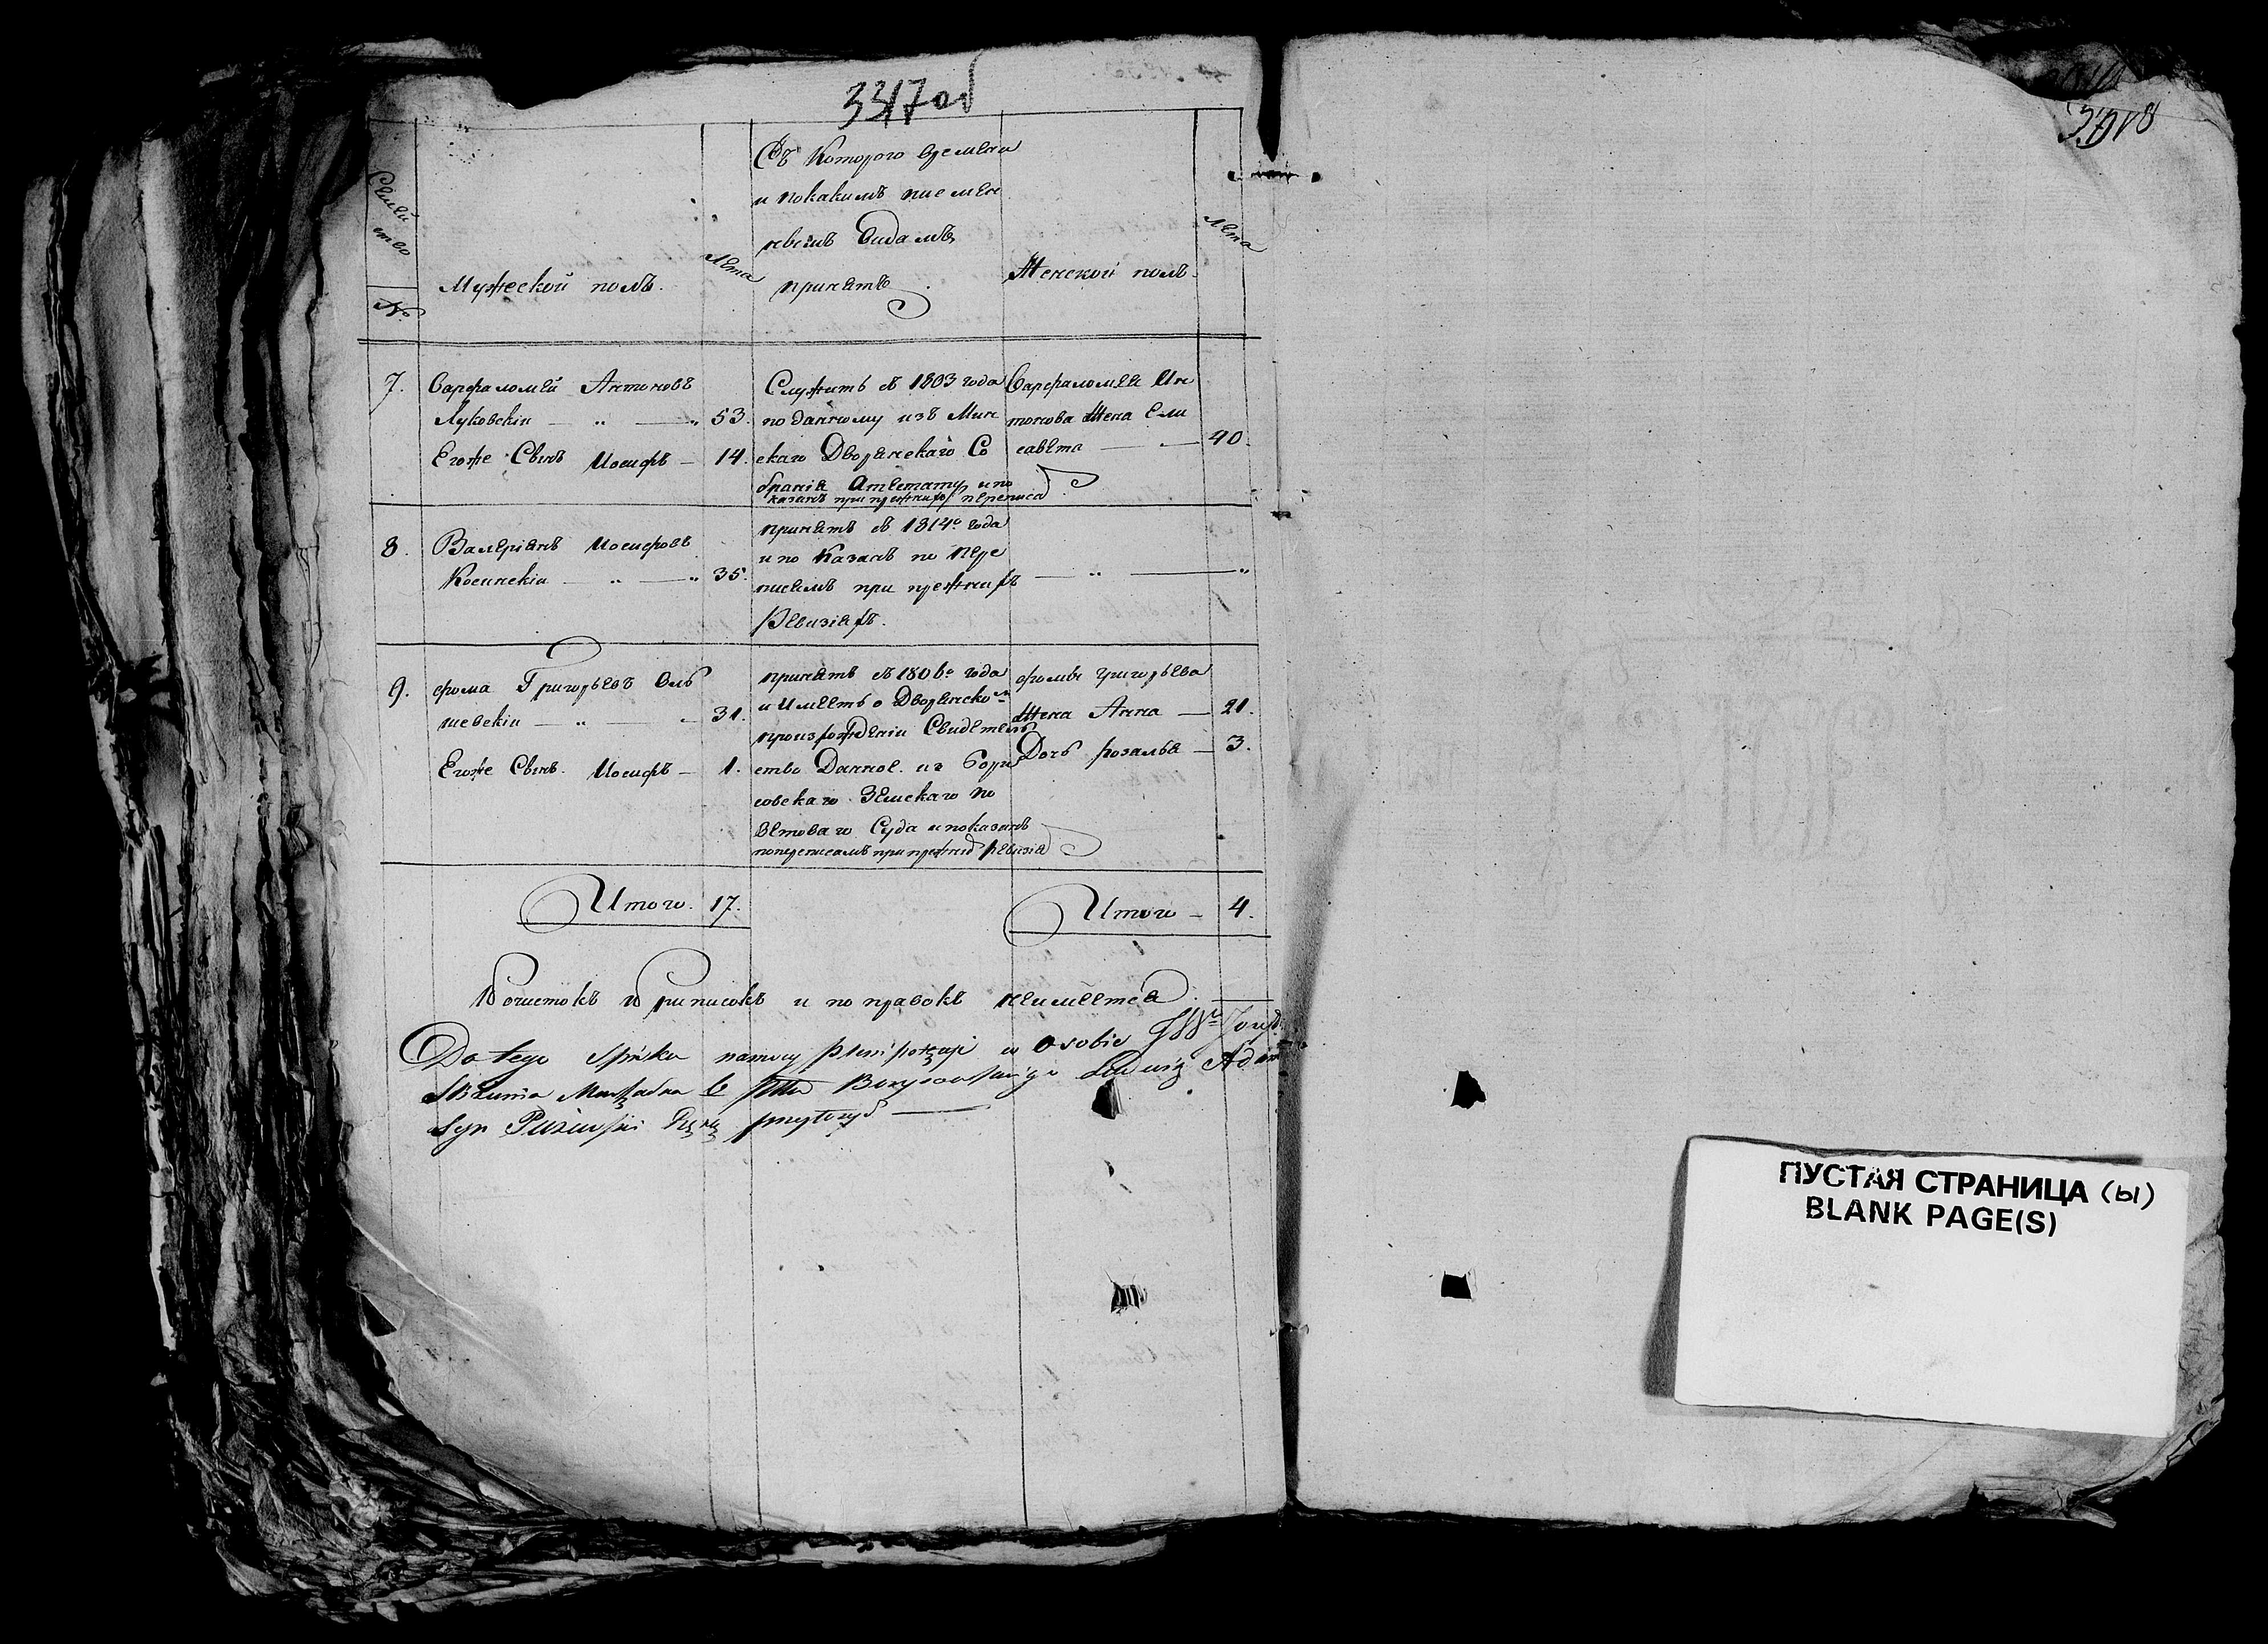 3317об
Семей
ство
№
Мужеской полъ.
Лета
Съ Которого времени
и покакимъ писмен
нымъ видамъ
принятъ
Женской полъ.
Лета
7. Варфаломей Антоновъ
Луковскiи — „ — „ 53.
Егоже Сынъ Иосифъ — 14.
Служитъ съ 1803 года
по данному изъ Мин
скаго Дворянскаго Со
бранiя Атестату ипо
казанъ при прежнихъ переписа
Варфаломея Ан
тонова Жена Ели
савета — 40.
8. Валерiянъ Иосифовъ
Косинскiи — „ — „ 35.
принятъ съ 1814го года
и по Казанъ по Пере
писямъ при прежнихъ
Ревизiяхъ.
— „ — „
9. фома Григорьевъ Оль
шевскiи — „ — 31.
Егоже Сынъ Иосифъ — 1.
принятъ съ 1806го года
и Имеетъ о Дворянском
произрожденiи Свидетель
ство Данное из Бори
совскаго Земскаго По
ветоваго Суда ипоказанъ
попереписямъ при прежней ревизiи
фомы григорьева
Жена Анна — 21.
Дочь розалья — 3.
Итого. 17.
Итого — 4.
Почистокъ Приписокъ и по правокъ неимеется.
Do tego Spisku na mocy plenipotencji w osobie
syn
ПУСТАЯ СТРАНИЦА (ы)
BLANK PAGE(S)